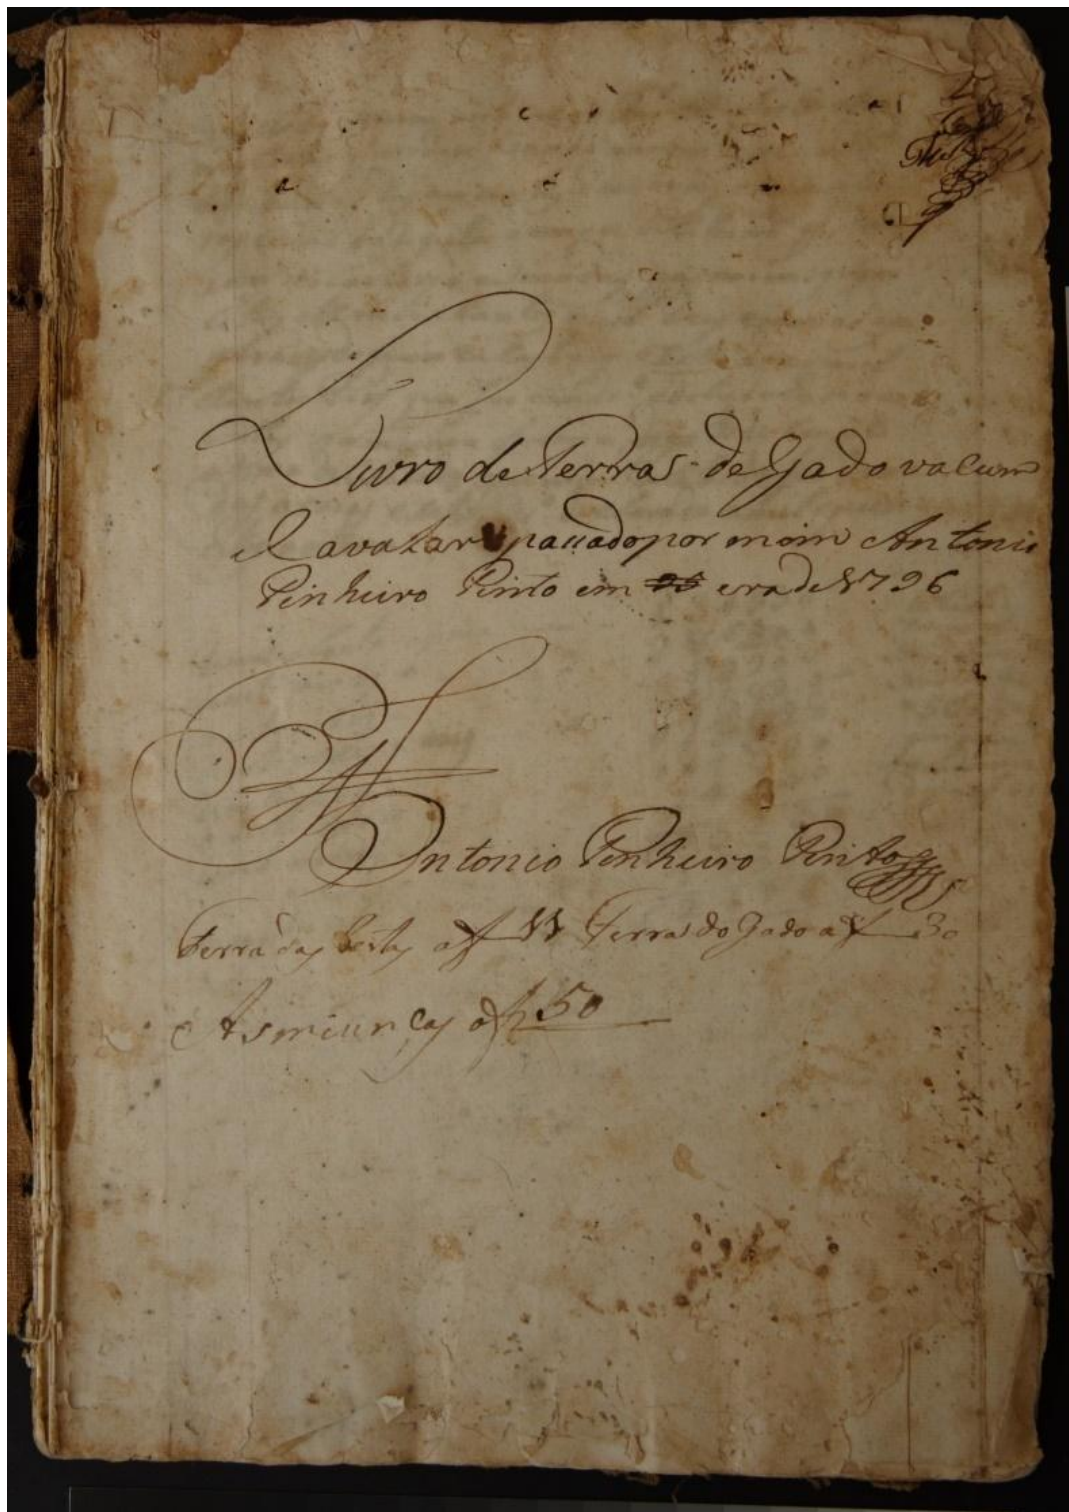 Livro de Ferras de Gado vacum
e Cavalar passado por mim Antonio
Pinheiro Pinto em era de 1796
Antonio Pinheiro Pinto
Ferra das bestas af 11 Ferra do Gado af 30
As miunças af 50